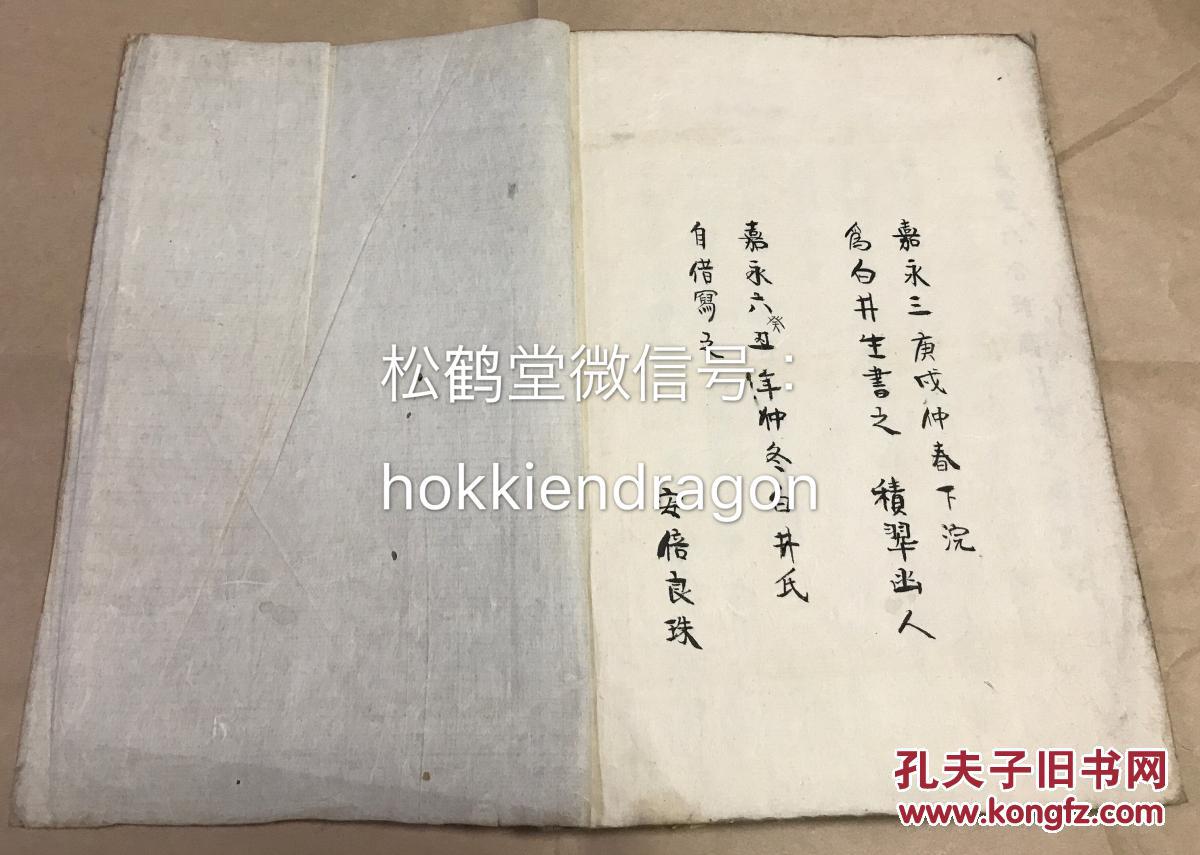 嘉永三庚戌仲春下浣
為白井生書之　積翠幽人
嘉永六癸丑年仲冬白井氏
自借寫之　安倍良珠
松鹤堂微信号：
hokkiendragon
孔夫子旧书网
www.kongfz.com